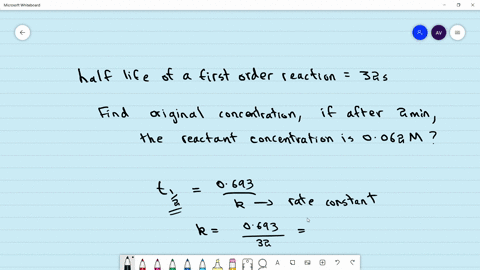 Microsoft Whiteboard
AV
half life of a first order reaction = 32s
Find original concentration, if after 2min,
the reactant concentration is 0.062M?
t 1/2 = 0.693 / k → rate constant
k = 0.693 / 32 =